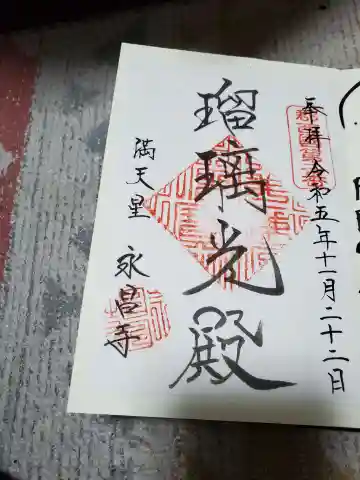 奉拝 令和五年十一月二十二日
瑠璃光殿
満天星 永昌寺